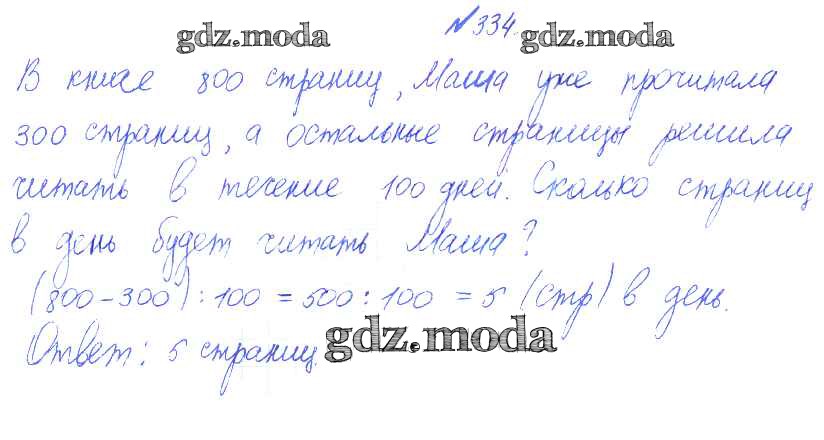 №334.
gdz.moda gdz.moda
В книге 800 страниц, Маша уже прочитала
300 страниц, а остальные страницы решила
читать в течение 100 дней. Сколько страниц
в день будет читать Маша?
(800-300):100=500:100=5 (стр) в день.
Ответ: 5 страниц.
gdz.moda